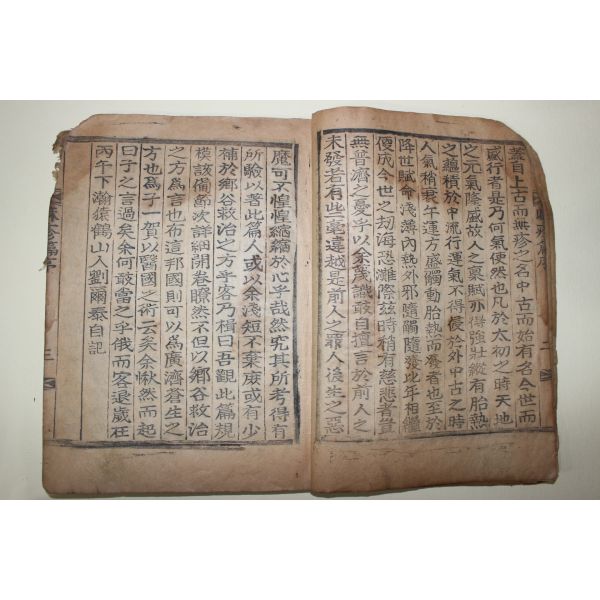 蓋自上古而無疹之名中古而始有名今世而
盛行者是乃何氣使然也凡於太初之時天地
之元氣隆盛故人之稟賦亦得強壯縱有胎熱
之蘊積於中流行運氣不得侵於外中古之時
人氣稍衰午運方盛觸動胎熱而發者也至於
降世賦命淺薄內執外邪隨觸隨發比年相繼
便成今世之劫海恐難際玆時稍有慈悲者豈
無普濟之憂乎以余蔑識敢自擅言於前人之
未發者有些毫違越是前人之罪人後生之惡
魔可不惶惶縮縮於心乎哉然究其所考得有
所驗以著此篇人或以余淺短不棄庶或有少
補於鄉谷救治之方乎客乃楫曰吾觀此篇規
模該備節次詳細開卷瞭然不但以鄉谷救治
之方為言也布這邦國則可以為廣濟蒼生之
方也為子一賀以醫國之術云矣余愀然而起
曰子之言過矣余何敢當之乎俄而客退歲在
丙午下瀚猿鶴山人劉爾泰自記
二
三